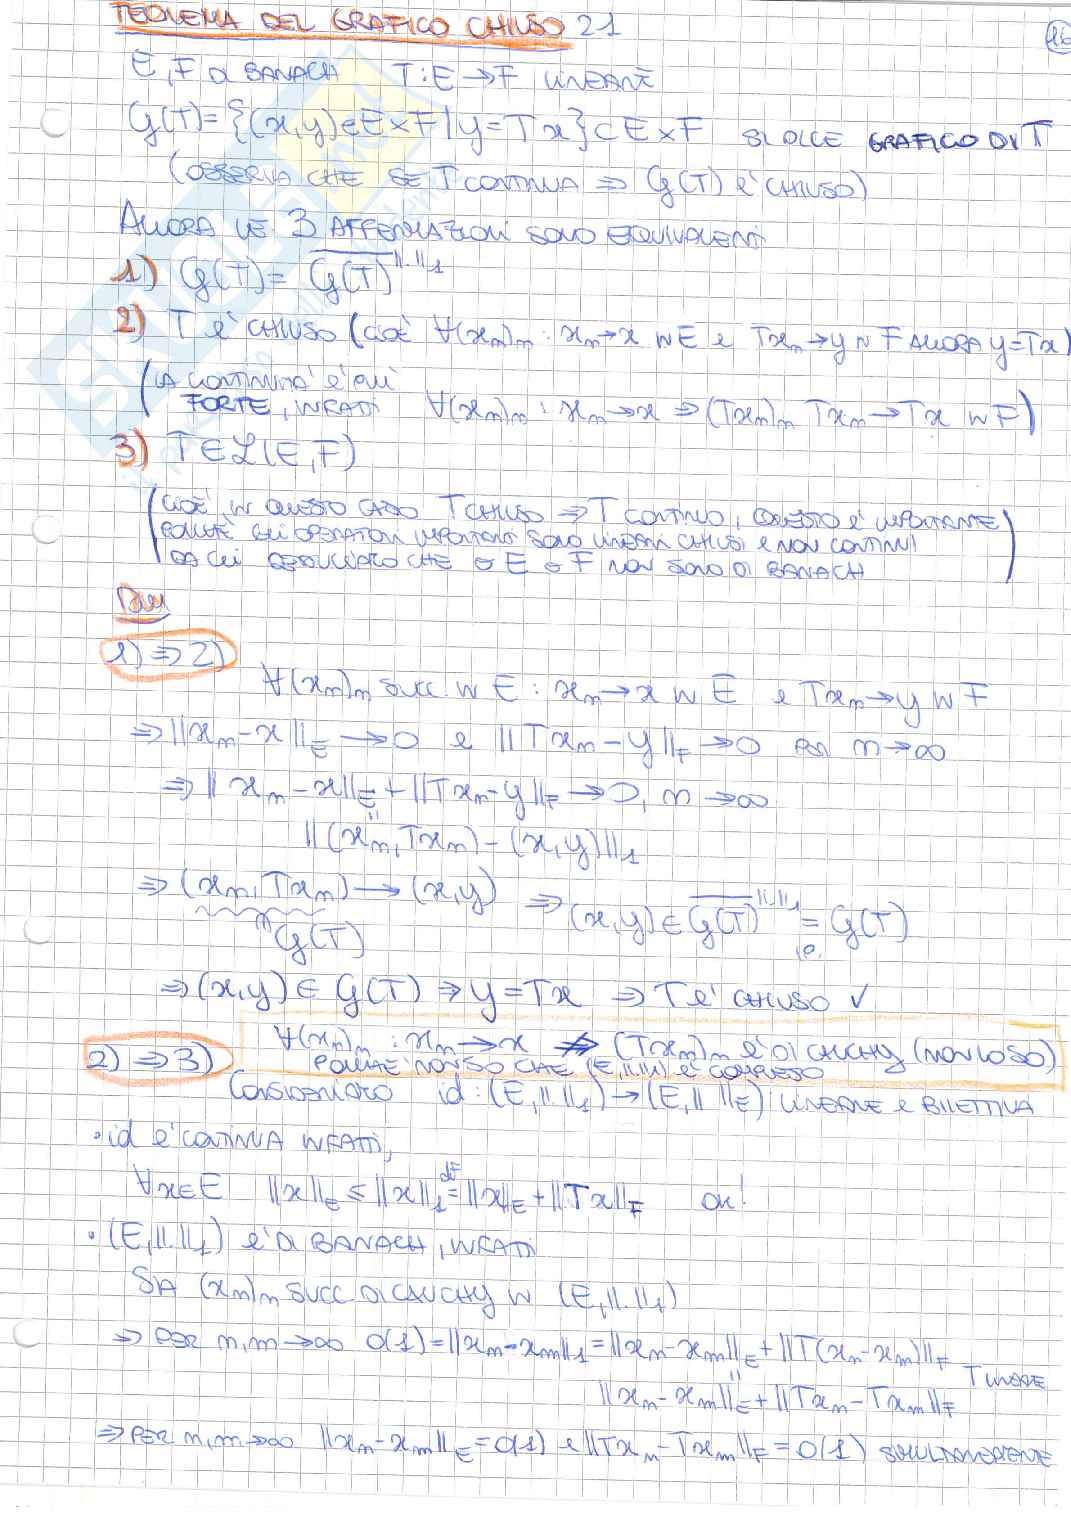 TEOREMA DEL GRAFICO CHIUSO 21
16
E, F DI BANACH T: E → F LINEARE
G(T) = {(x,y) ∈ E×F | y = Tx} ⊂ E×F SI DICE GRAFICO DI T
(OSSERVA CHE SE T CONTINUA ⇒ G(T) E' CHIUSO)
ALLORA LE 3 AFFERMAZIONI SONO EQUIVALENTI
1) G(T) = \overline{G(T)}^{||.||_1}
2) T E' CHIUSO (CIOE' ∀(x_n)_n : x_n → x IN E e Tx_n → y IN F ALLORA y = Tx)
(LA CONTINUITA' E' PIU'
FORTE, INFATTI ∀(x_n)_n : x_n → x ⇒ (Tx_n)_n Tx_n → Tx IN F)
3) T ∈ L(E,F)
(CIOE', IN QUESTO CASO T CHIUSO ⇒ T CONTINUO, QUESTO E' IMPORTANTE
POICHE' GLI OPERATORI IMPORTANTI SONO LINEARI CHIUSI e NON CONTINUI
DA CUI DEDUCIAMO CHE o E o F NON SONO DI BANACH)
Dim
1) ⇒ 2)
∀(x_n)_n SUCC. IN E : x_n → x IN E e Tx_n → y IN F
⇒ ||x_n - x||_E → 0 e ||Tx_n - y||_F → 0 PER n → ∞
⇒ ||x_n - x||_E + ||Tx_n - y||_F → 0, n → ∞
||
||(x_n, Tx_n) - (x,y)||_1
⇒ (x_n, Tx_n) → (x,y) ⇒ (x,y) ∈ \overline{G(T)}^{||.||_1} = G(T)
∈ G(T)
⇒ (x,y) ∈ G(T) ⇒ y = Tx ⇒ T E' CHIUSO ✓
2) ⇒ 3)
∀(x_n)_n : x_n → x ⇏ (Tx_n)_n E' DI CAUCHY (NON LO SO)
POICHE' NON SO CHE (E, ||.||_1) E' COMPLETO
CONSIDERIAMO id : (E, ||.||_1) → (E, || ||_E) LINEARE e BIIETTIVA
• id E' CONTINUA INFATTI,
∀x ∈ E ||x||_E ≤ ||x||_1 =^{def} ||x||_E + ||Tx||_F OK!
• (E, ||.||_1) E' DI BANACH, INFATTI
SIA (x_n)_n SUCC DI CAUCHY IN (E, ||.||_1)
⇒ PER n,m → ∞ o(1) = ||x_n - x_m||_1 = ||x_n - x_m||_E + ||T(x_n - x_m)||_F
T LINEARE
||
||x_n - x_m||_E + ||Tx_n - Tx_m||_F
⇒ PER n,m → ∞ ||x_n - x_m||_E = o(1) e ||Tx_n - Tx_m||_F = o(1) SIMULTANEAMENTE